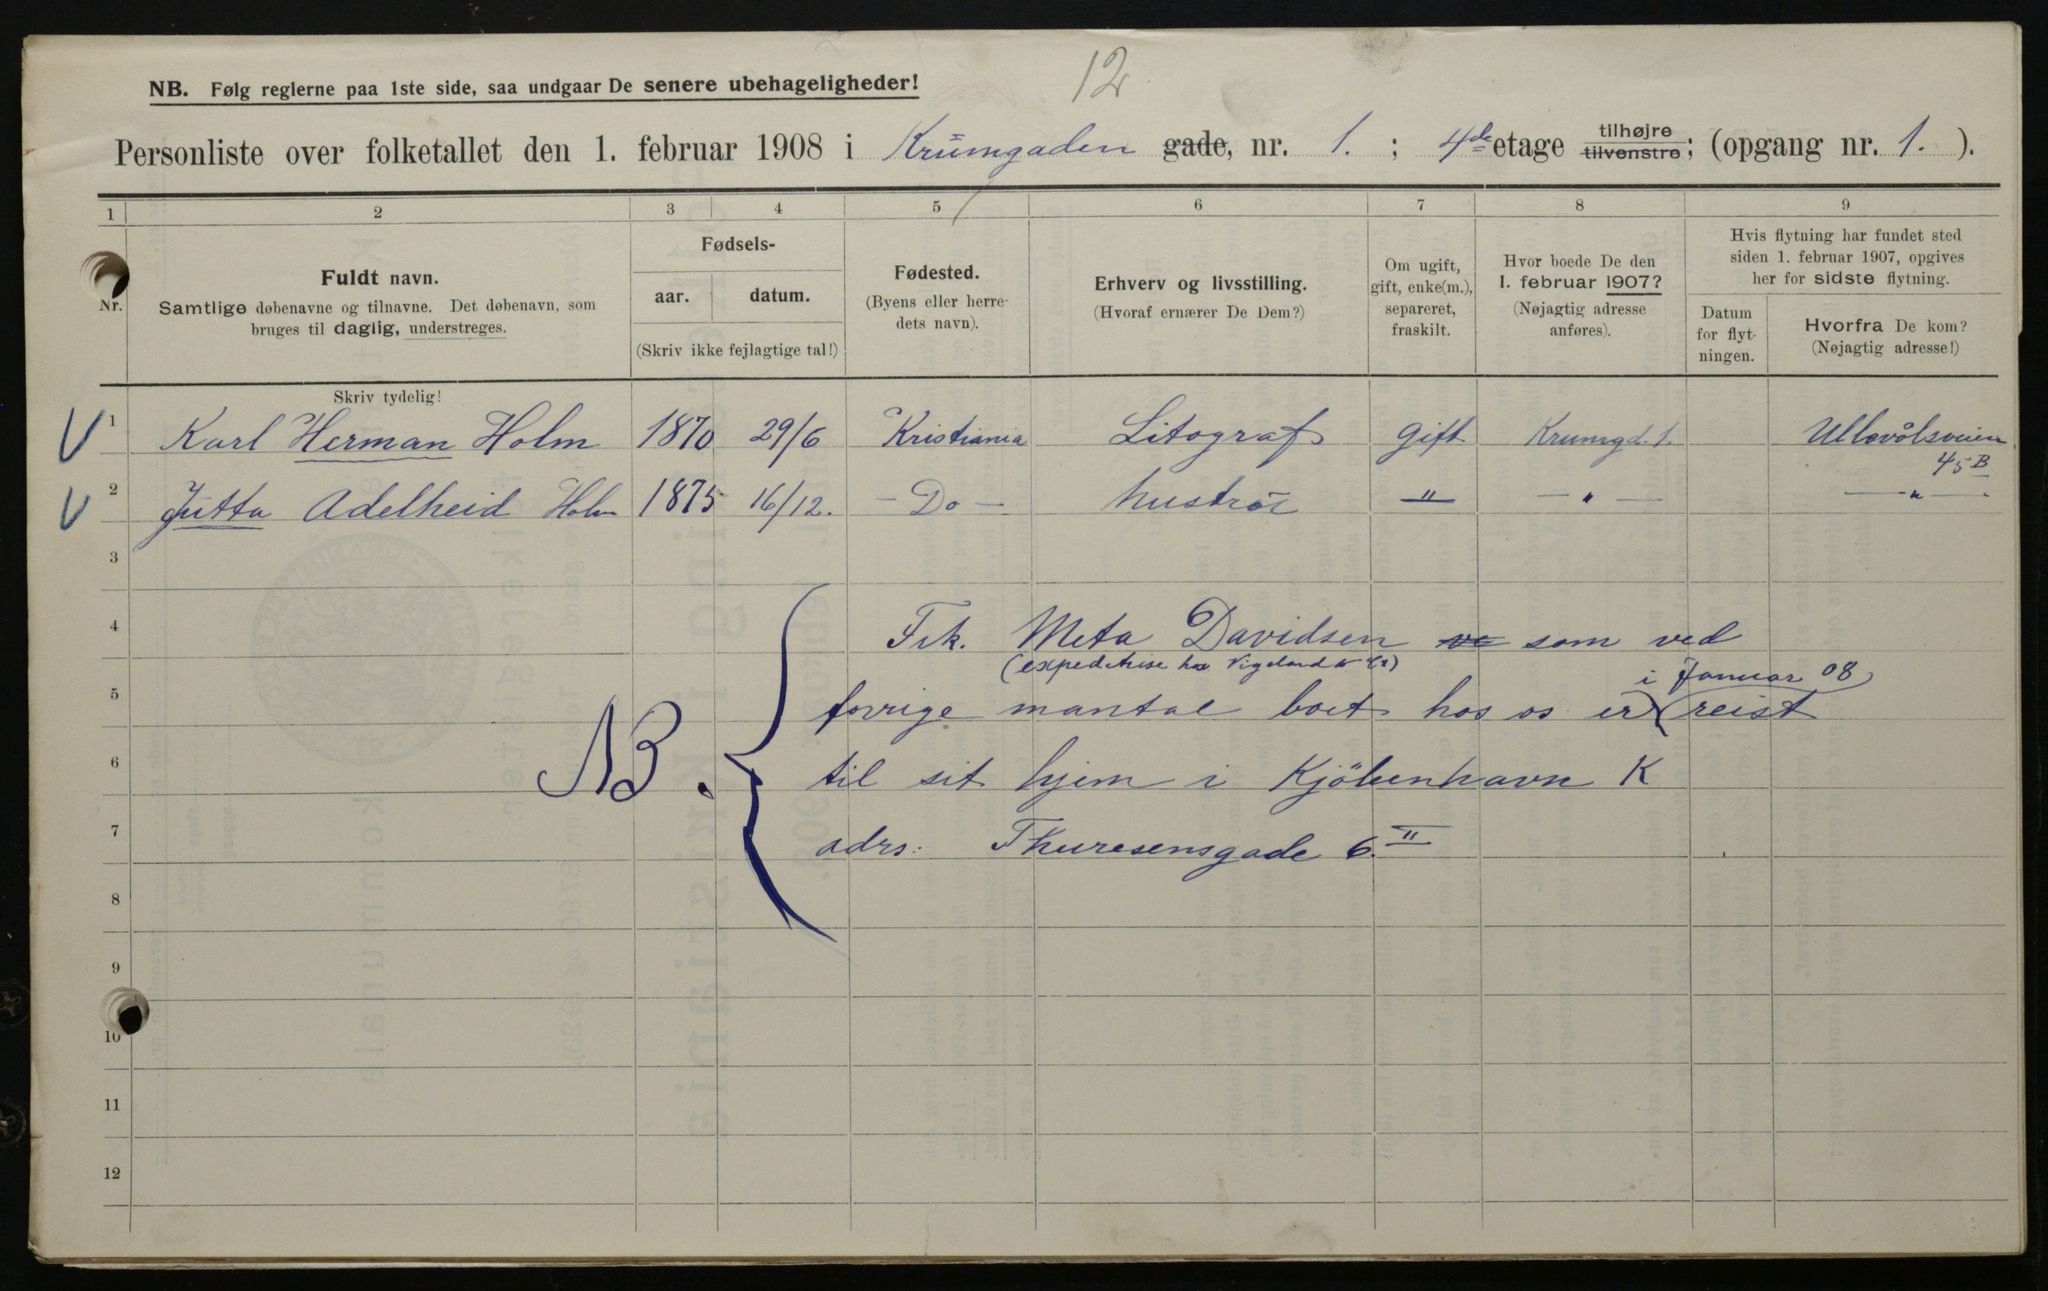 12
NB. Følg reglerne paa 1ste side, saa undgaar De senere ubehageligheder!
Personliste over folketallet den 1. februar 1908 i Krumgaden gade, nr. 1. ; 4de etage tilhøjre tilvenstre; (opgang nr. 1. ).
1 2 3 4 5 6 7 8 9
Nr.
Fuldt navn.
Samtlige døbenavne og tilnavne. Det døbenavn, som
bruges til daglig, understreges.
Fødsels-
aar. datum.
(Skriv ikke fejlagtige tal!)
Fødested.
(Byens eller herre-
dets navn).
Erhverv og livsstilling.
(Hvoraf ernærer De Dem?)
Om ugift,
gift, enke(m.),
separeret,
fraskilt.
Hvor boede De den
1. februar 1907?
(Nøjagtig adresse
anføres).
Hvis flytning har fundet sted
siden 1. februar 1907, opgives
her for sidste flytning.
Datum
for flyt-
ningen.
Hvorfra De kom?
(Nøjagtig adresse!)
Skriv tydelig!
1 Karl Herman Holm 1870 29/6 Kristiania Litograf gift Krumgd. 1. Ullevålsveien
45B
2 Jutta Adelheid Holm 1875 16/12. - Do - hustru " - " - - " -
3
4 Frk. Meta Davidsen som ved
(expeditrise hos Vigeland
i Januar 08
5 forrige mantal boet hos os er reist
NB.
6 til sit hjem i Kjöbenhavn K
7 adrs: Thuresensgade 6. II
8
9
10
11
12